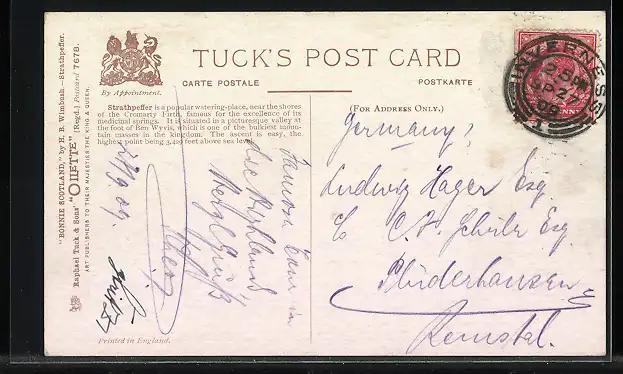 TUCK'S POST CARD
CARTE POSTALE
POSTKARTE
By Appointment.
(FOR ADDRESS ONLY.)
Strathpeffer is a popular watering-place, near the shores
of the Cromarty Firth, famous for the excellence of its
medicinal springs. It is situated in a picturesque valley at
the foot of Ben Wyvis, which is one of the bulkiest moun-
tain masses in the kingdom. The ascent is easy, the
highest point being 3,429 feet above sea level.
"BONNIE SCOTLAND," by H. B. Wimbush. – Strathpeffer.
Raphael Tuck & Sons' "OILETTE" [Regd.] Postcard 7678.
ART PUBLISHERS TO THEIR MAJESTIES THE KING & QUEEN.
Famose Tour in
die Highlands
Herzl Gruß
Printed in England.
INVERNESS
Germany
Ludwig Hager Esq
C/o C. F. Schuler Esq.
Plüderhausen
Remstal.